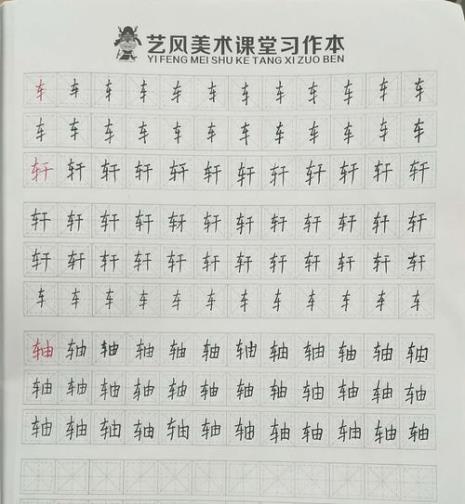 艺风美术课堂习作本
YI FENG MEI SHU KE TANG XI ZUO BEN
车车车车车车车车车车车车
车车车车车车车车车车车车
轩轩轩轩轩轩轩轩轩轩轩轩
轩轩轩轩轩轩轩轩轩轩轩轩
轩轩轩轩轩轩轩轩轩轩轩轩
车车车车车车车车车车车车
轴轴轴轴轴轴轴轴轴轴轴轴
轴轴轴轴轴轴轴轴轴轴轴轴
轴轴轴轴轴轴轴轴轴轴轴轴